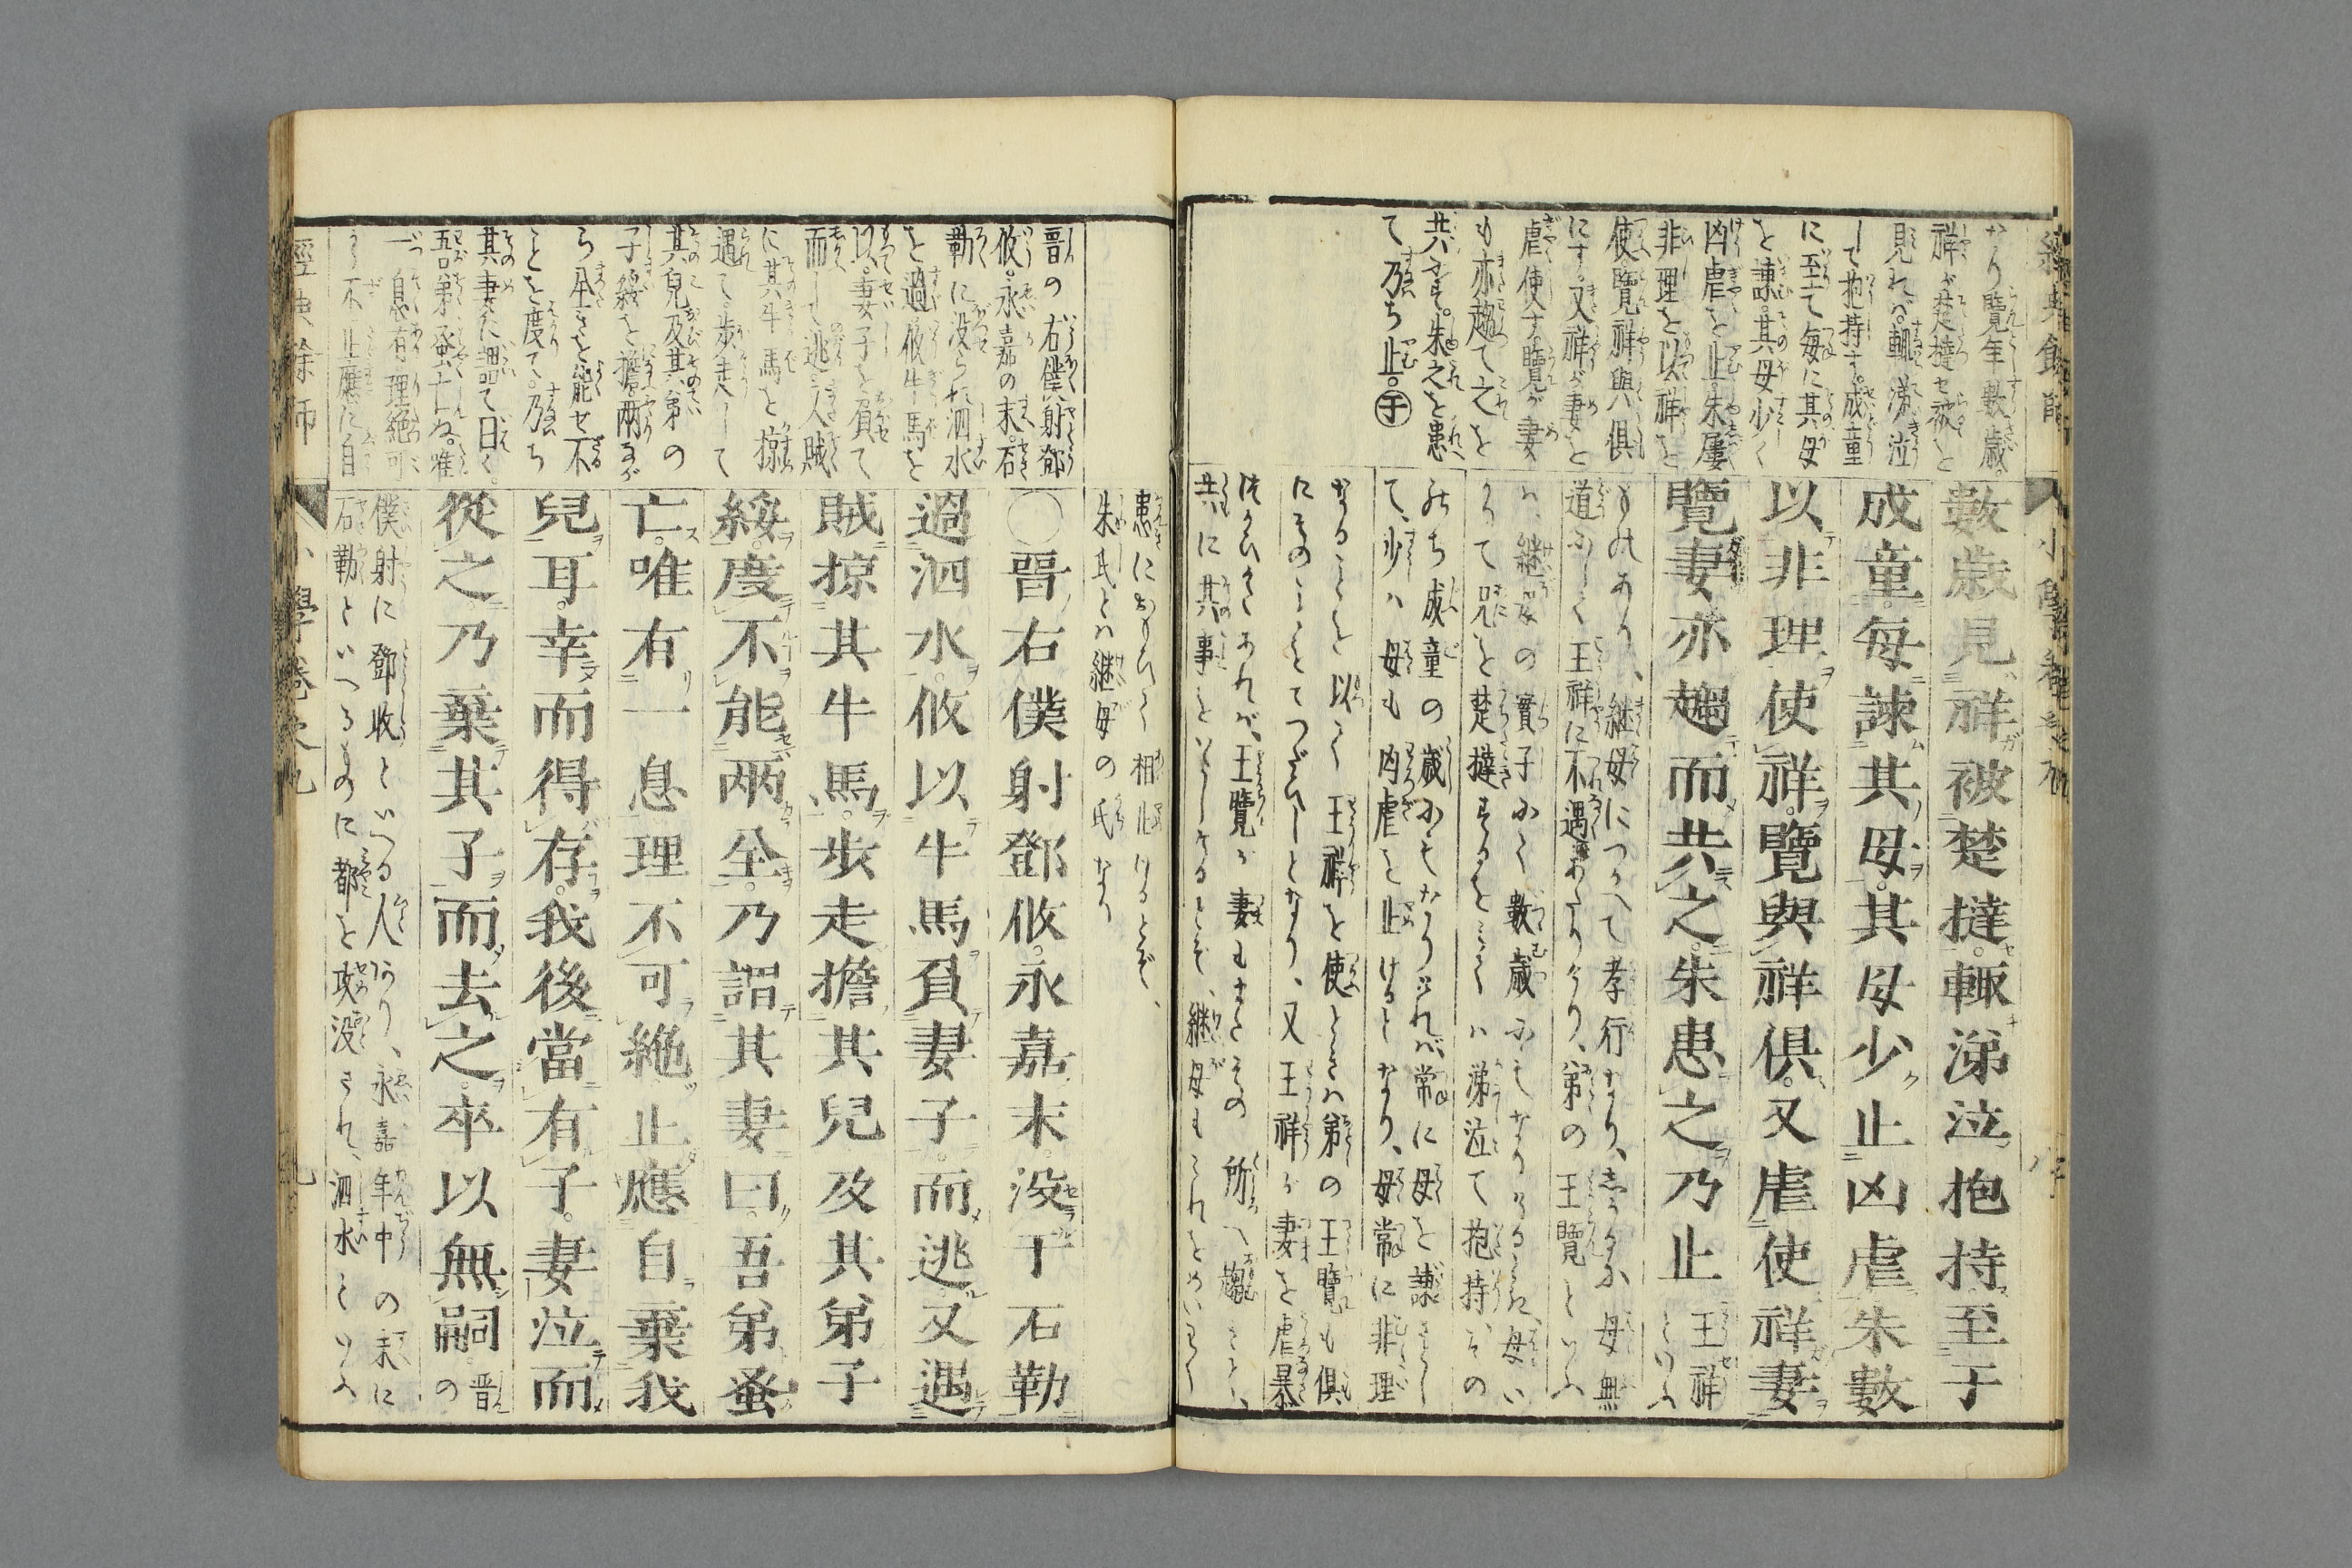 なり覽年數歲。
祥が楚撻セ被を
見れバ。輙涕泣
して抱持す。成童
に至て毎に其母
を諌。其母少く
凶虐を止。朱屢
非理を以祥を
使。覽祥與俱
にす。又祥が妻を
虐使す覽が妻
も亦趨て之を
共にす。朱之を患
て乃ち止。㊉
數歲見祥被楚撻。輙涕泣抱持。至于
成童。毎諌其母。其母少止凶虐朱數
以非理使祥。覽與祥俱。又虐使祥妻
覽妻亦趨而共之。朱患之乃止
王祥
といふ
ものあり、継母につかへて孝行なり、しかるに母無
道にして王祥に不遇あたりけり、弟の王覽といふ
ハ、継母の實子にて數歲にもなりけるころ、母い
かつて兄を楚撻するをミてハ涕泣て抱持、その
のち成童の歲にもなりければ、常に母を諌さとし
て、少ハ母も凶虐を止けるとなり、母常に非理
なることを以て王祥を使ときハ弟の王覽も俱
にそのことをてつだひしとなり、又王祥が妻を虐暴
つかひてあれバ、王覽が妻もまたその所へ趨きて、
共に其事をいたしけるとぞ、継母もこれをめいわく
患におもひて相止けるとぞ、
朱氏とハ継母の氏なり
晋の右僕射鄧
攸。永嘉の末。石
勒に没られ泗水
を過。攸牛馬を
以。妻子を負て
而して逃。又賊
に其牛馬を掠
遇て。歩走して
其兒及其弟の
子綏を擔。両ながら
全きを能セ不
ことを度て。乃ち
其妻に謂て曰く。
吾弟蚤亡ぬ。唯
一息有。理絶可
ら不。止應に自
〇晋右僕射鄧攸。永嘉末。没于石勒
過泗水。攸以牛馬負妻子。而逃。又遇
賊掠其牛馬。歩走擔其兒及其弟子
綏。度不能兩全。乃謂其妻曰。吾弟蚤
亡。唯有一息理不可絶。止應自棄我
兒耳。幸而得存。我後當有子。妻泣而
從之。乃棄其子而去之。卒以無嗣。
晋の
僕射に鄧攸といへる人あり、永嘉年中の末に
石勒といへるものに都を攻没され、泗水といふ
經典餘師
小學卷之九
九